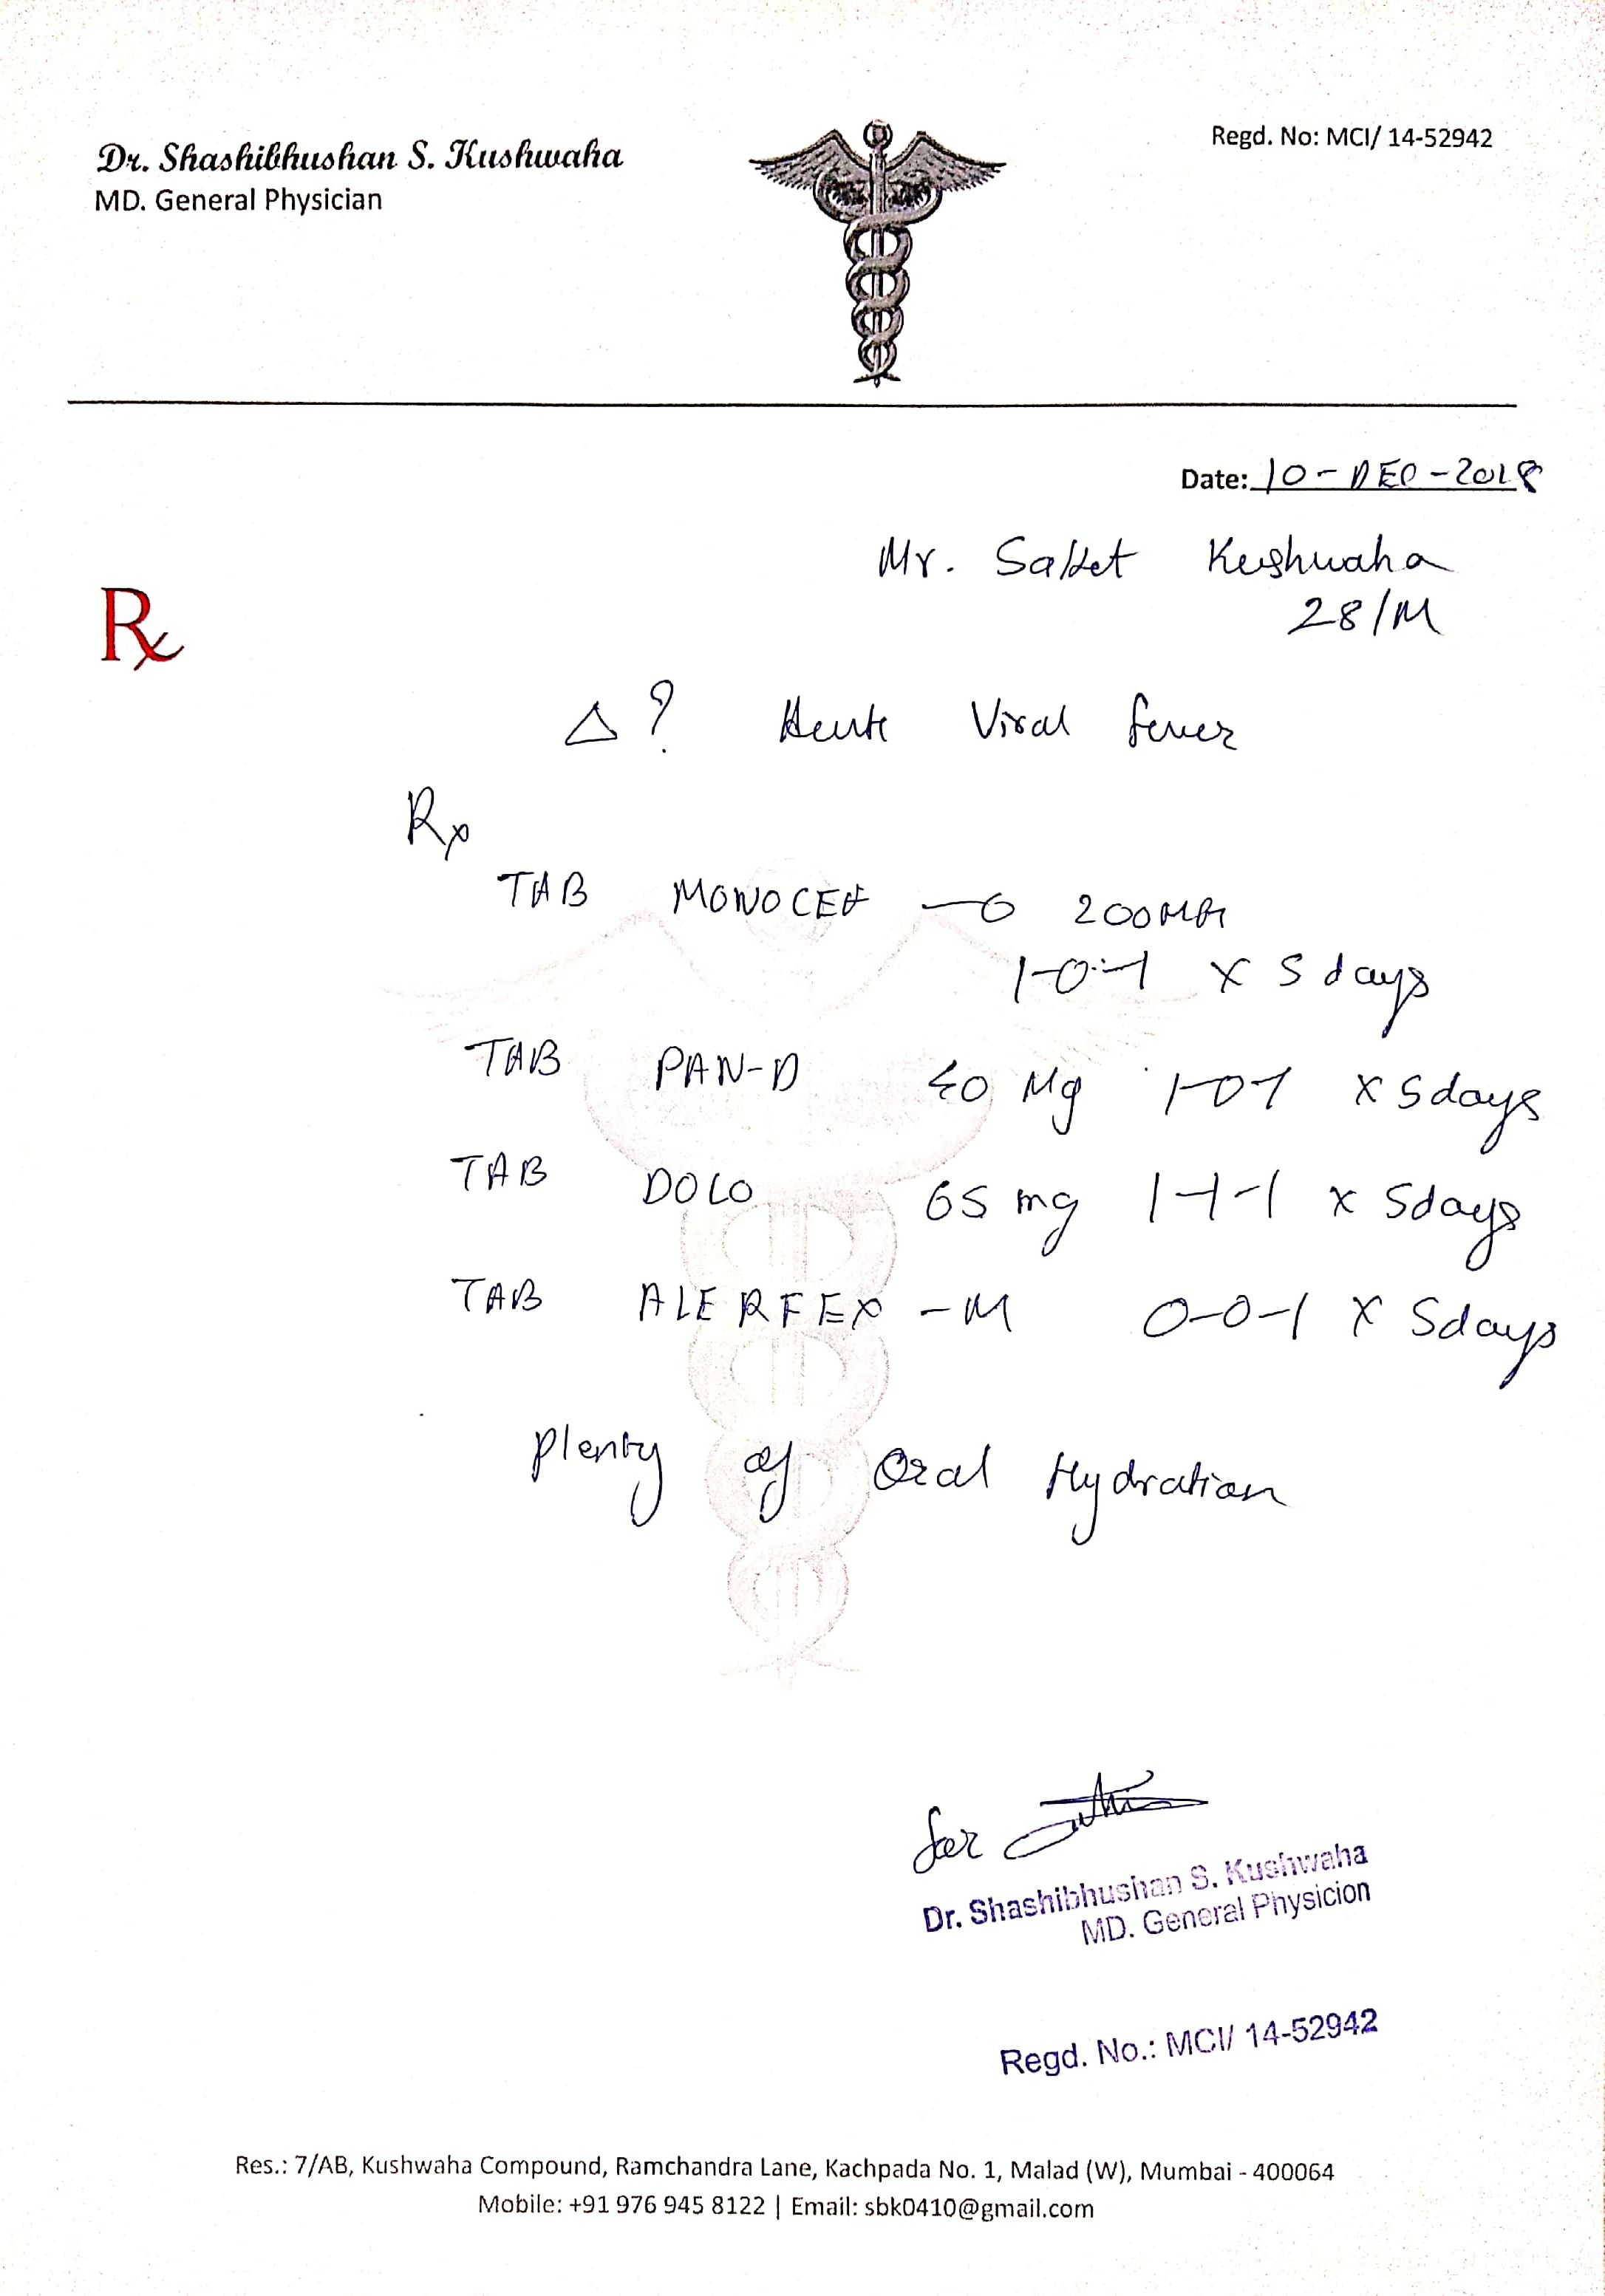 Dr. Shashibhushan S. Kushwaha
MD. General Physician
Regd. No: MCI/ 14-52942
Date: 10-DEC-2018
Mr. Saket Kushwaha
28/M
Rx
Δ? Acute Viral fever
Rx
TAB MONOCEF -O 200MG
1-0-1 x 5 days
TAB PAN-D 40 Mg 1-0-1 x 5days
TAB DOLO 65 mg 1-1-1 x 5days
TAB ALERFEX -M 0-0-1 x 5days
Plenty of Oral Hydration
for
Dr. Shashibhushan S. Kushwaha
MD. General Physicion
Regd. No.: MCI/ 14-52942
Res.: 7/AB, Kushwaha Compound, Ramchandra Lane, Kachpada No. 1, Malad (W), Mumbai - 400064
Mobile: +91 976 945 8122 | Email: sbk0410@gmail.com